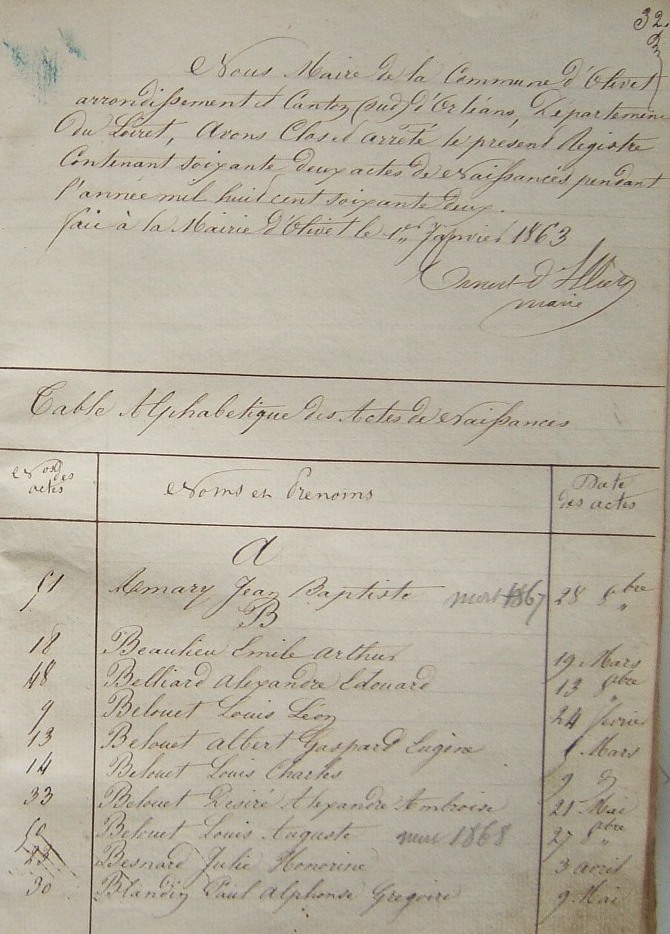 32.
Nous Maire de la Commune d'Olivet
arrondissement et Canton (sud) d'Orléans, Départemen
du Loiret, Avons Clos et arrêté le present Registre
Contenant soixante deux actes de Naissances pendant
l'année mil huit cent soixante deux.
fait à la Mairie d'Olivet le 1er Janvier 1863
maire
Table Alphabetique des Actes de Naissances
Nos des actes
Noms et Prenoms
Date des actes
A
51 Amary Jean Baptiste mort 1867 28 8bre
B
18 Beaulieu Emile Arthur 19 Mars
48 Belliard Alexandre Edouard 13 8bre
9 Belouet Louis Léon 24 février
13 Belouet Albert Gaspard Eugène 1 Mars
14 Belouet Louis Charles 9 do
33 Belouet Desiré Alexandre Ambroise 21 Mai
50 Belouet Louis Auguste mort 1868 27 8bre
23 Besnard Julie Honorine 3 avril
30 Blandin Paul Alphonse Gregoire 9 Mai